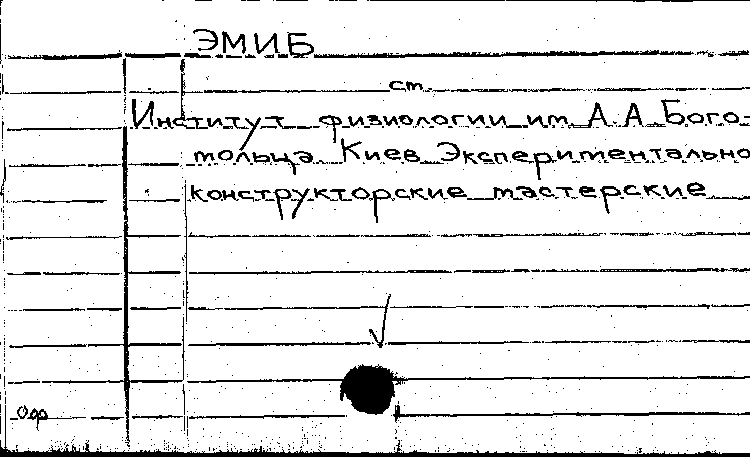 ЭМИБ
ст.
Институт физиологии им. А. А. Бого-
мольца. Киев. Экспериментально
конструкторские мастерские
Офр